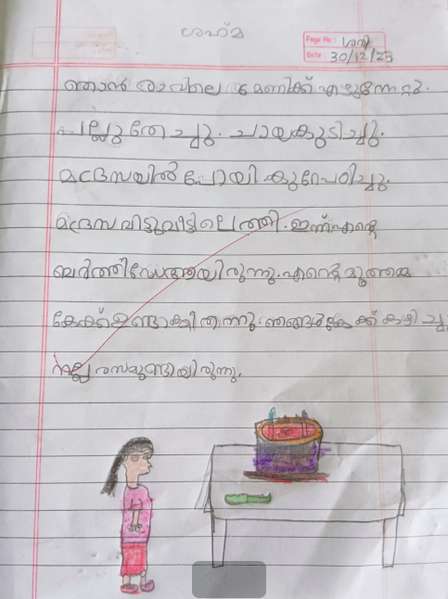 ശഹ്മ
Page No: ശനി
Date: 30/12/23
ഞാൻ രാവിലെ 6 മണിക്ക് എഴുന്നേറ്റു.
പല്ലുതേച്ചു. ചായകുടിച്ചു.
മദ്രസയിൽ പോയി കുറേപഠിച്ചു.
മദ്രസ വിട്ടുവീട്ടിലെത്തി. ഇന്ന്എന്റെ
ബർത്ത്ഡേആയിരുന്നു. എന്റെ മുത്തമ്മ
കേക്ക്ഉണ്ടാക്കി തന്നു ഞങ്ങൾകേക്ക് കഴിച്ചു
നല്ല രസമുണ്ടായിരുന്നു.